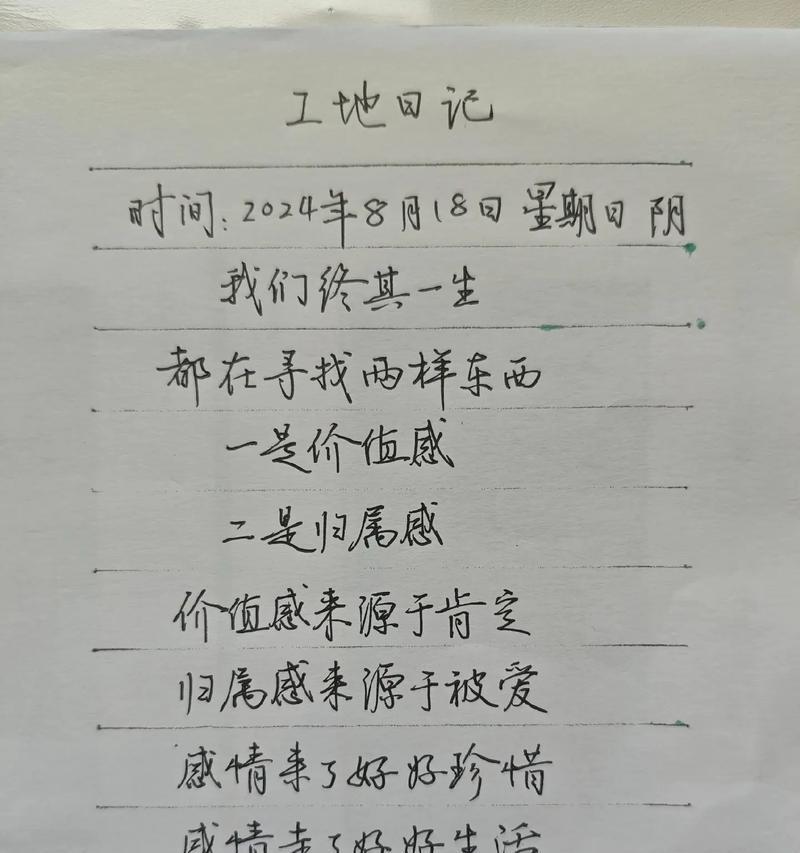 工地日记
时间:2024年8月18日 星期日 阴
我们终其一生
都在寻找两样东西
一是价值感
二是归属感
价值感来源于肯定
归属感来源于被爱
感情来了好好珍惜
感情走了好好生活